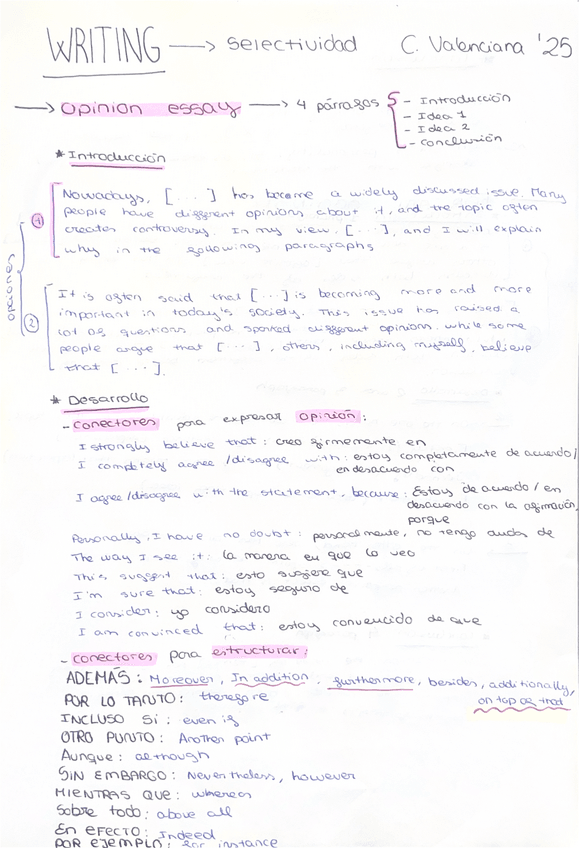 WRITING → Selectividad C. Valenciana '25
→ Opinion essay → 4 párrafos
- Introducción
- Idea 1
- Idea 2
- Conclusión
* Introducción
opciones
1
Nowadays, [...] has become a widely discussed issue. Many
people have different opinions about it, and the topic often
creates controversy. In my view, [...], and I will explain
why in the following paragraphs
2
It is often said that [...] is becoming more and more
important in today's society. This issue has raised a
lot of questions and sparked different opinions. While some
people argue that [...], others, including myself, believe
that [...].
* Desarrollo
- conectores para expresar opinión:
I strongly believe that: creo firmemente en
I completely agree /disagree with: estoy completamente de acuerdo/
en desacuerdo con
I agree /disagree with the statement, because: Estoy de acuerdo / en
desacuerdo con la afirmación,
porque
Personally, I have no doubt: personalmente, no tengo dudas de
The way I see it: la manera en que lo veo
This suggest that: esto sugiere que
I'm sure that: estoy seguro de
I consider: yo considero
I am convinced that: estoy convencido de que
- conectores para estructurar:
ADEMÁS: Moreover, In addition, furthermore, besides, additionally,
on top of that
POR LO TANTO: therefore
INCLUSO SI: even if
OTRO PUNTO: Another point
Aunque: although
SIN EMBARGO: Nevertheless, however
MIENTRAS QUE: whereas
Sobre todo: above all
En efecto: Indeed
POR EJEMPLO: for instance